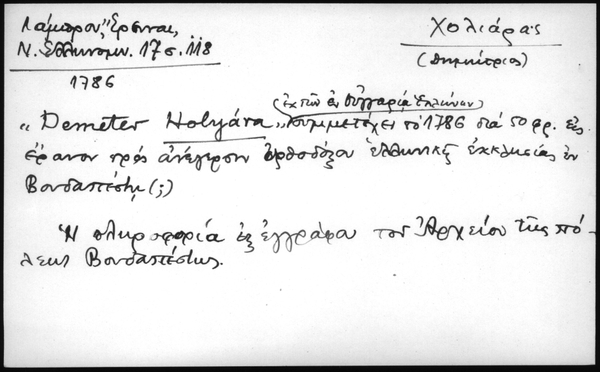 Λάμπρου, Ἔρευναι,
Ν. Ἑλληνομν. 17 σ. 118
1786
Χολιάρας
(Δημήτριος)
(ἐκ τῶν ἐν Οὑγγαρίᾳ Ἑλλήνων)
"Demeter Holyára" συμμετέχει τὸ 1786 διά 50 φρ. εἰς
ἔρανον πρὸς ἀνέγερσιν ὀρθοδόξου ἑλληνικῆς ἐκκλησίας ἐν
Βουδαπέστῃ (;)
Ἡ πληροφορία ἐξ ἐγγράφου τοῦ Ἀρχείου τῆς πό-
λεως Βουδαπέστης.